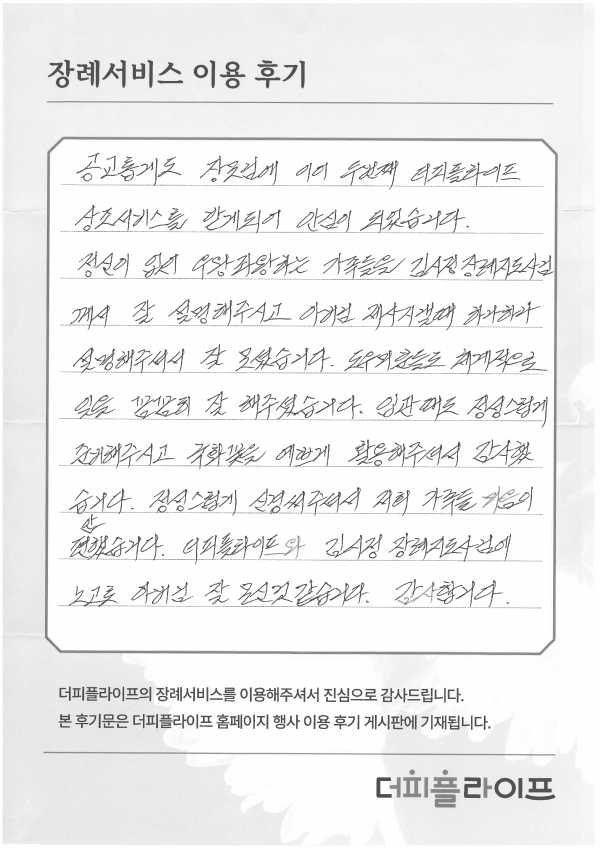 장례서비스 이용 후기
공교롭게도 장모님에 이어 두번째 더피플라이프
상조서비스를 받게되어 안심이 되었습니다.
정신이 없이 우왕좌왕하는 가족들을 김시정장례지도사님
께서 잘 설명해주시고 아버님 제사지낼때 하나하나
설명해주셔서 잘 모셨습니다. 도우미분들도 체계적으로
일을 꼼꼼히 잘 해주셨습니다. 입관때도 정성스럽게
준비해주시고 국화꽃을 예쁘게 활용해주셔서 감사했
습니다. 정성스럽게 신경써주셔서 저희 가족들 마음이
편했습니다. 더피플라이프와 김시정 장례지도사님에
노고로 아버님 잘 모신것 같습니다. 감사합니다.
더피플라이프의 장례서비스를 이용해주셔서 진심으로 감사드립니다.
본 후기문은 더피플라이프 홈페이지 행사 이용 후기 게시판에 기재됩니다.
더피플라이프